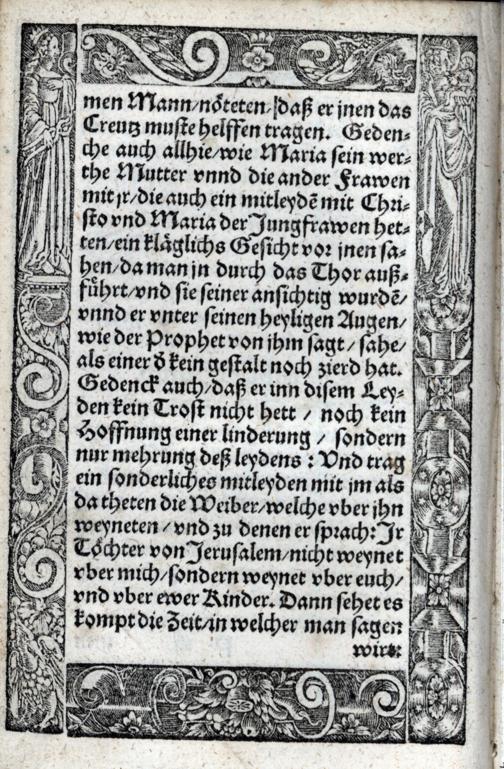 men Mann/nöteten/daß er jnen das
Creutz muste helffen tragen. Geden-
che auch allhie/wie Maria sein wer-
the Mutter vnnd die ander Frawen
mit jr/die auch ein mitleydẽ mit Chri-
sto vnd Maria der Jungfrawen het-
ten/ein kläglichs Gesicht vor jnen sa-
hen/da man jn durch das Thor auß-
fuͤhrt/vnd sie seiner ansichtig wurdẽ/
vnnd er vnter seinen heyligen Augen/
wie der Prophet von jhm sagt/sahe/
als einer ď kein gestalt noch zierd hat.
Gedenck auch/daß er inn disem Ley-
den kein Trost nicht hett / noch kein
Hoffnung einer linderung / sondern
nur mehrung deß leydens : Vnd trag
ein sonderliches mitleyden mit jm als
da theten die Weiber/welche vber jhn
weyneten / vnd zu denen er sprach: Jr
Töchter von Jerusalem/nicht weynet
vber mich/sondern weynet vber euch/
vnd vber ewer Kinder. Dann sehet es
kompt die Zeit/in welcher man sagen
wirt: